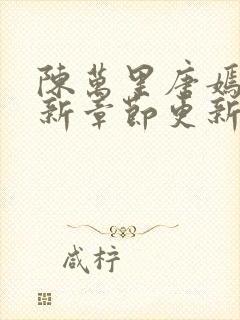 陳萬里唐嫣
新章節更新
咸柠